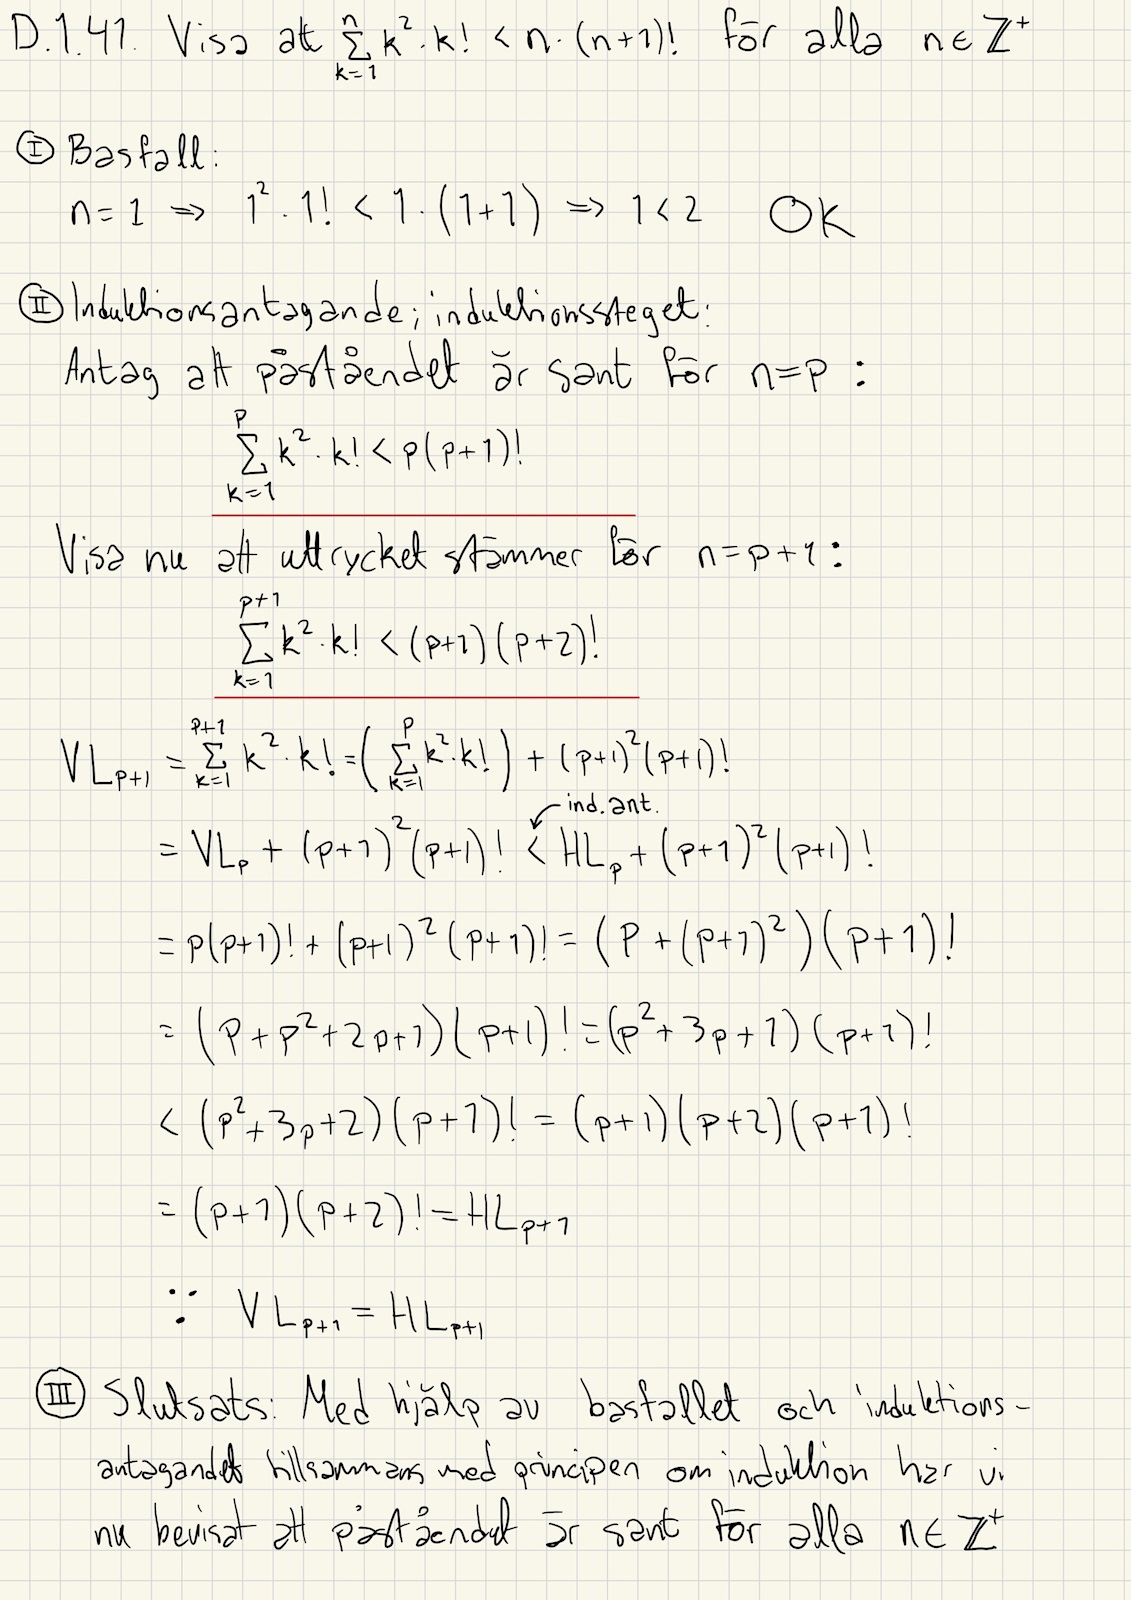 D.1.41. Visa att ∑_{k=1}^{n} k²·k! < n·(n+1)! för alla n∈Z⁺
Ⓘ Basfall:
n=1 ⇒ 1²·1! < 1·(1+1) ⇒ 1<2 OK
Ⓘⓘ Induktionsantagande; induktionssteget:
Antag att påståendet är sant för n=p :
∑_{k=1}^{p} k²·k! < p(p+1)!
Visa nu att uttrycket stämmer för n=p+1:
∑_{k=1}^{p+1} k²·k! < (p+1)(p+2)!
VL_{p+1} = ∑_{k=1}^{p+1} k²·k! = (∑_{k=1}^{p} k²·k!) + (p+1)²(p+1)!
ind.ant.
= VL_p + (p+1)²(p+1)! < HL_p + (p+1)²(p+1)!
= p(p+1)! + (p+1)²(p+1)! = (p+(p+1)²)(p+1)!
= (p+p²+2p+1)(p+1)! = (p²+3p+1)(p+1)!
< (p²+3p+2)(p+1)! = (p+1)(p+2)(p+1)!
= (p+1)(p+2)! = HL_{p+1}
∵ VL_{p+1} = HL_{p+1}
ⒾⒾⒾ Slutsats: Med hjälp av basfallet och induktions-
antagandet tillsammans med principen om induktion har vi
nu bevisat att påståendet är sant för alla n∈Z⁺